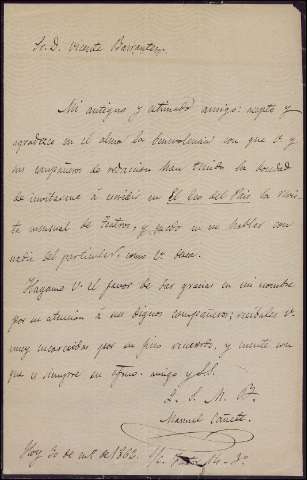 Sr. D. Vicente Barrantes.
Mi antiguo y estimado amigo: acepto y
agradezco en el alma la benevolencia con que V. y
sus compañeros de redaccion han tenido la bondad
de invitarme á escribir en El Eco del Pais la revis-
ta mensual de teatros, y quedo en no hablar con
nadie del particular, como V. desea.
Hagame V. el favor de dar gracias en mi nombre
por su atencion á sus dignos compañeros; recibalas V.
muy encarecidas por su fino recuerdo, y cuente con
que es siempre su afmo. amigo y
Q. S. M. B.
Manuel Cañete
Hoy 30 de 1862.